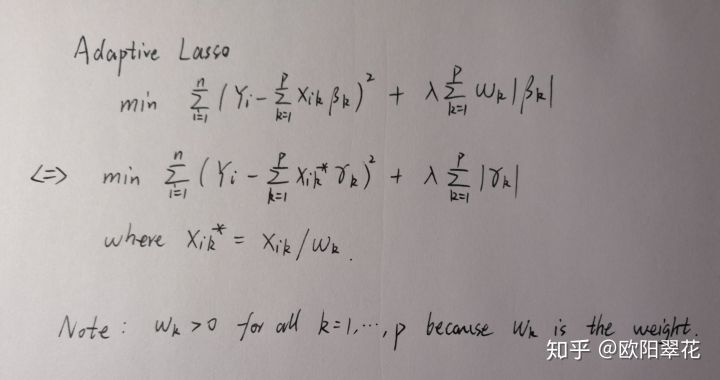 Adaptive Lasso
min \sum_{i=1}^{n} (Y_i - \sum_{k=1}^{p} X_{ik} β_k)^2 + λ \sum_{k=1}^{p} w_k |β_k|
<=> min \sum_{i=1}^{n} (Y_i - \sum_{k=1}^{p} X_{ik}^* γ_k)^2 + λ \sum_{k=1}^{p} |γ_k|
where X_{ik}^* = X_{ik} / w_k.
Note: w_k > 0 for all k=1,...,p because w_k is the weight.
知乎 @欧阳翠花